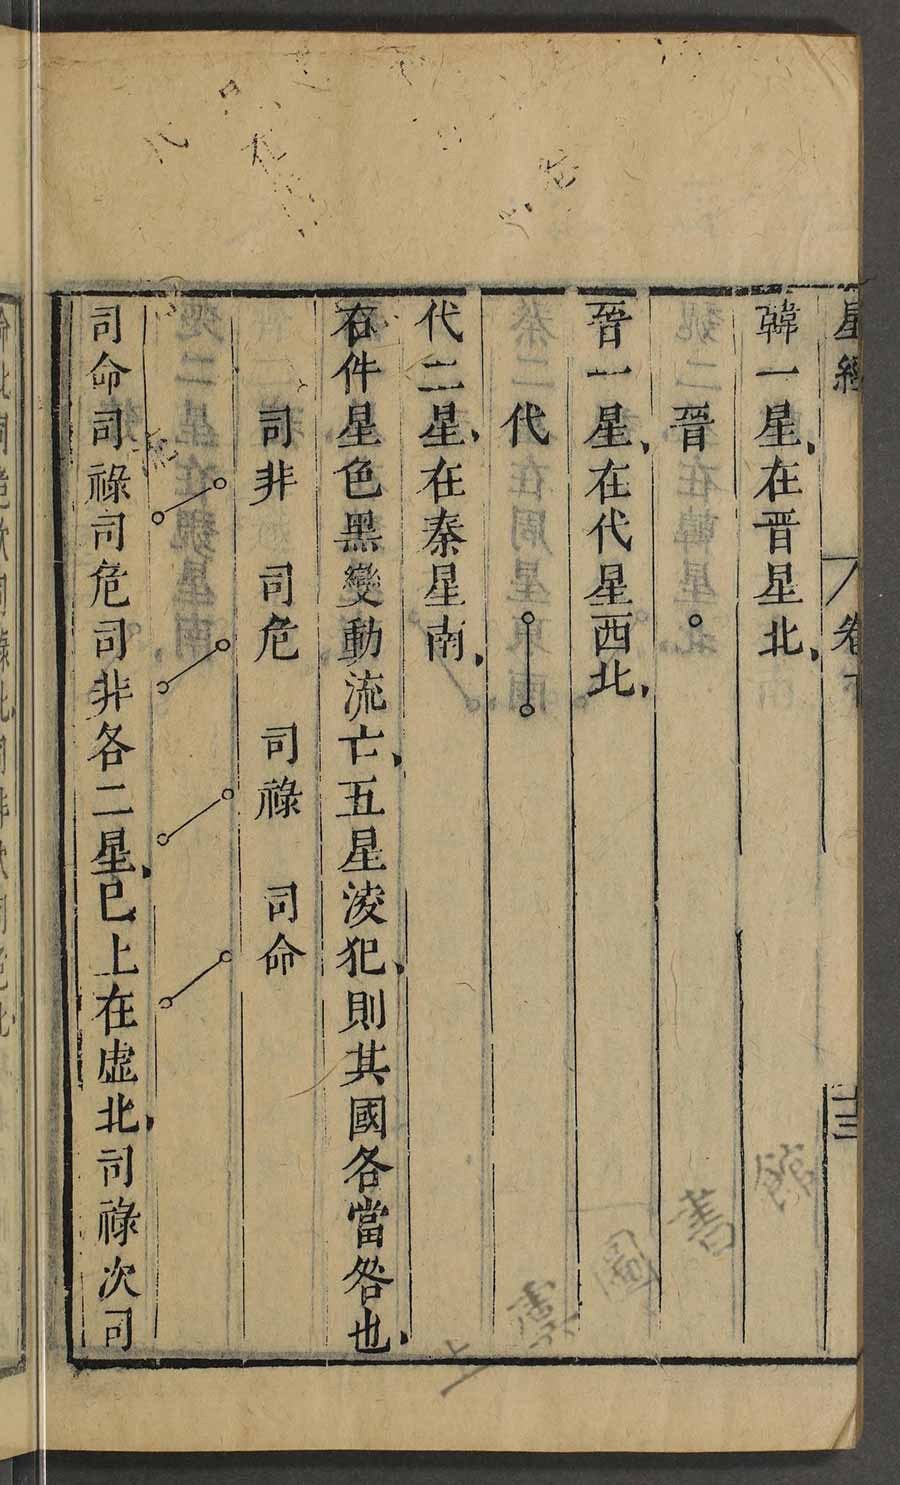 星經 卷下 十三
韓一星在晋星北
晉
晉一星在代星西北
代
代二星在秦星南
右件星色黑變動流亡五星淩犯則其國各當咎也
司非 司危 司祿 司命
司命司祿司危司非各二星已上在虛北司祿次司
上雲圖書館